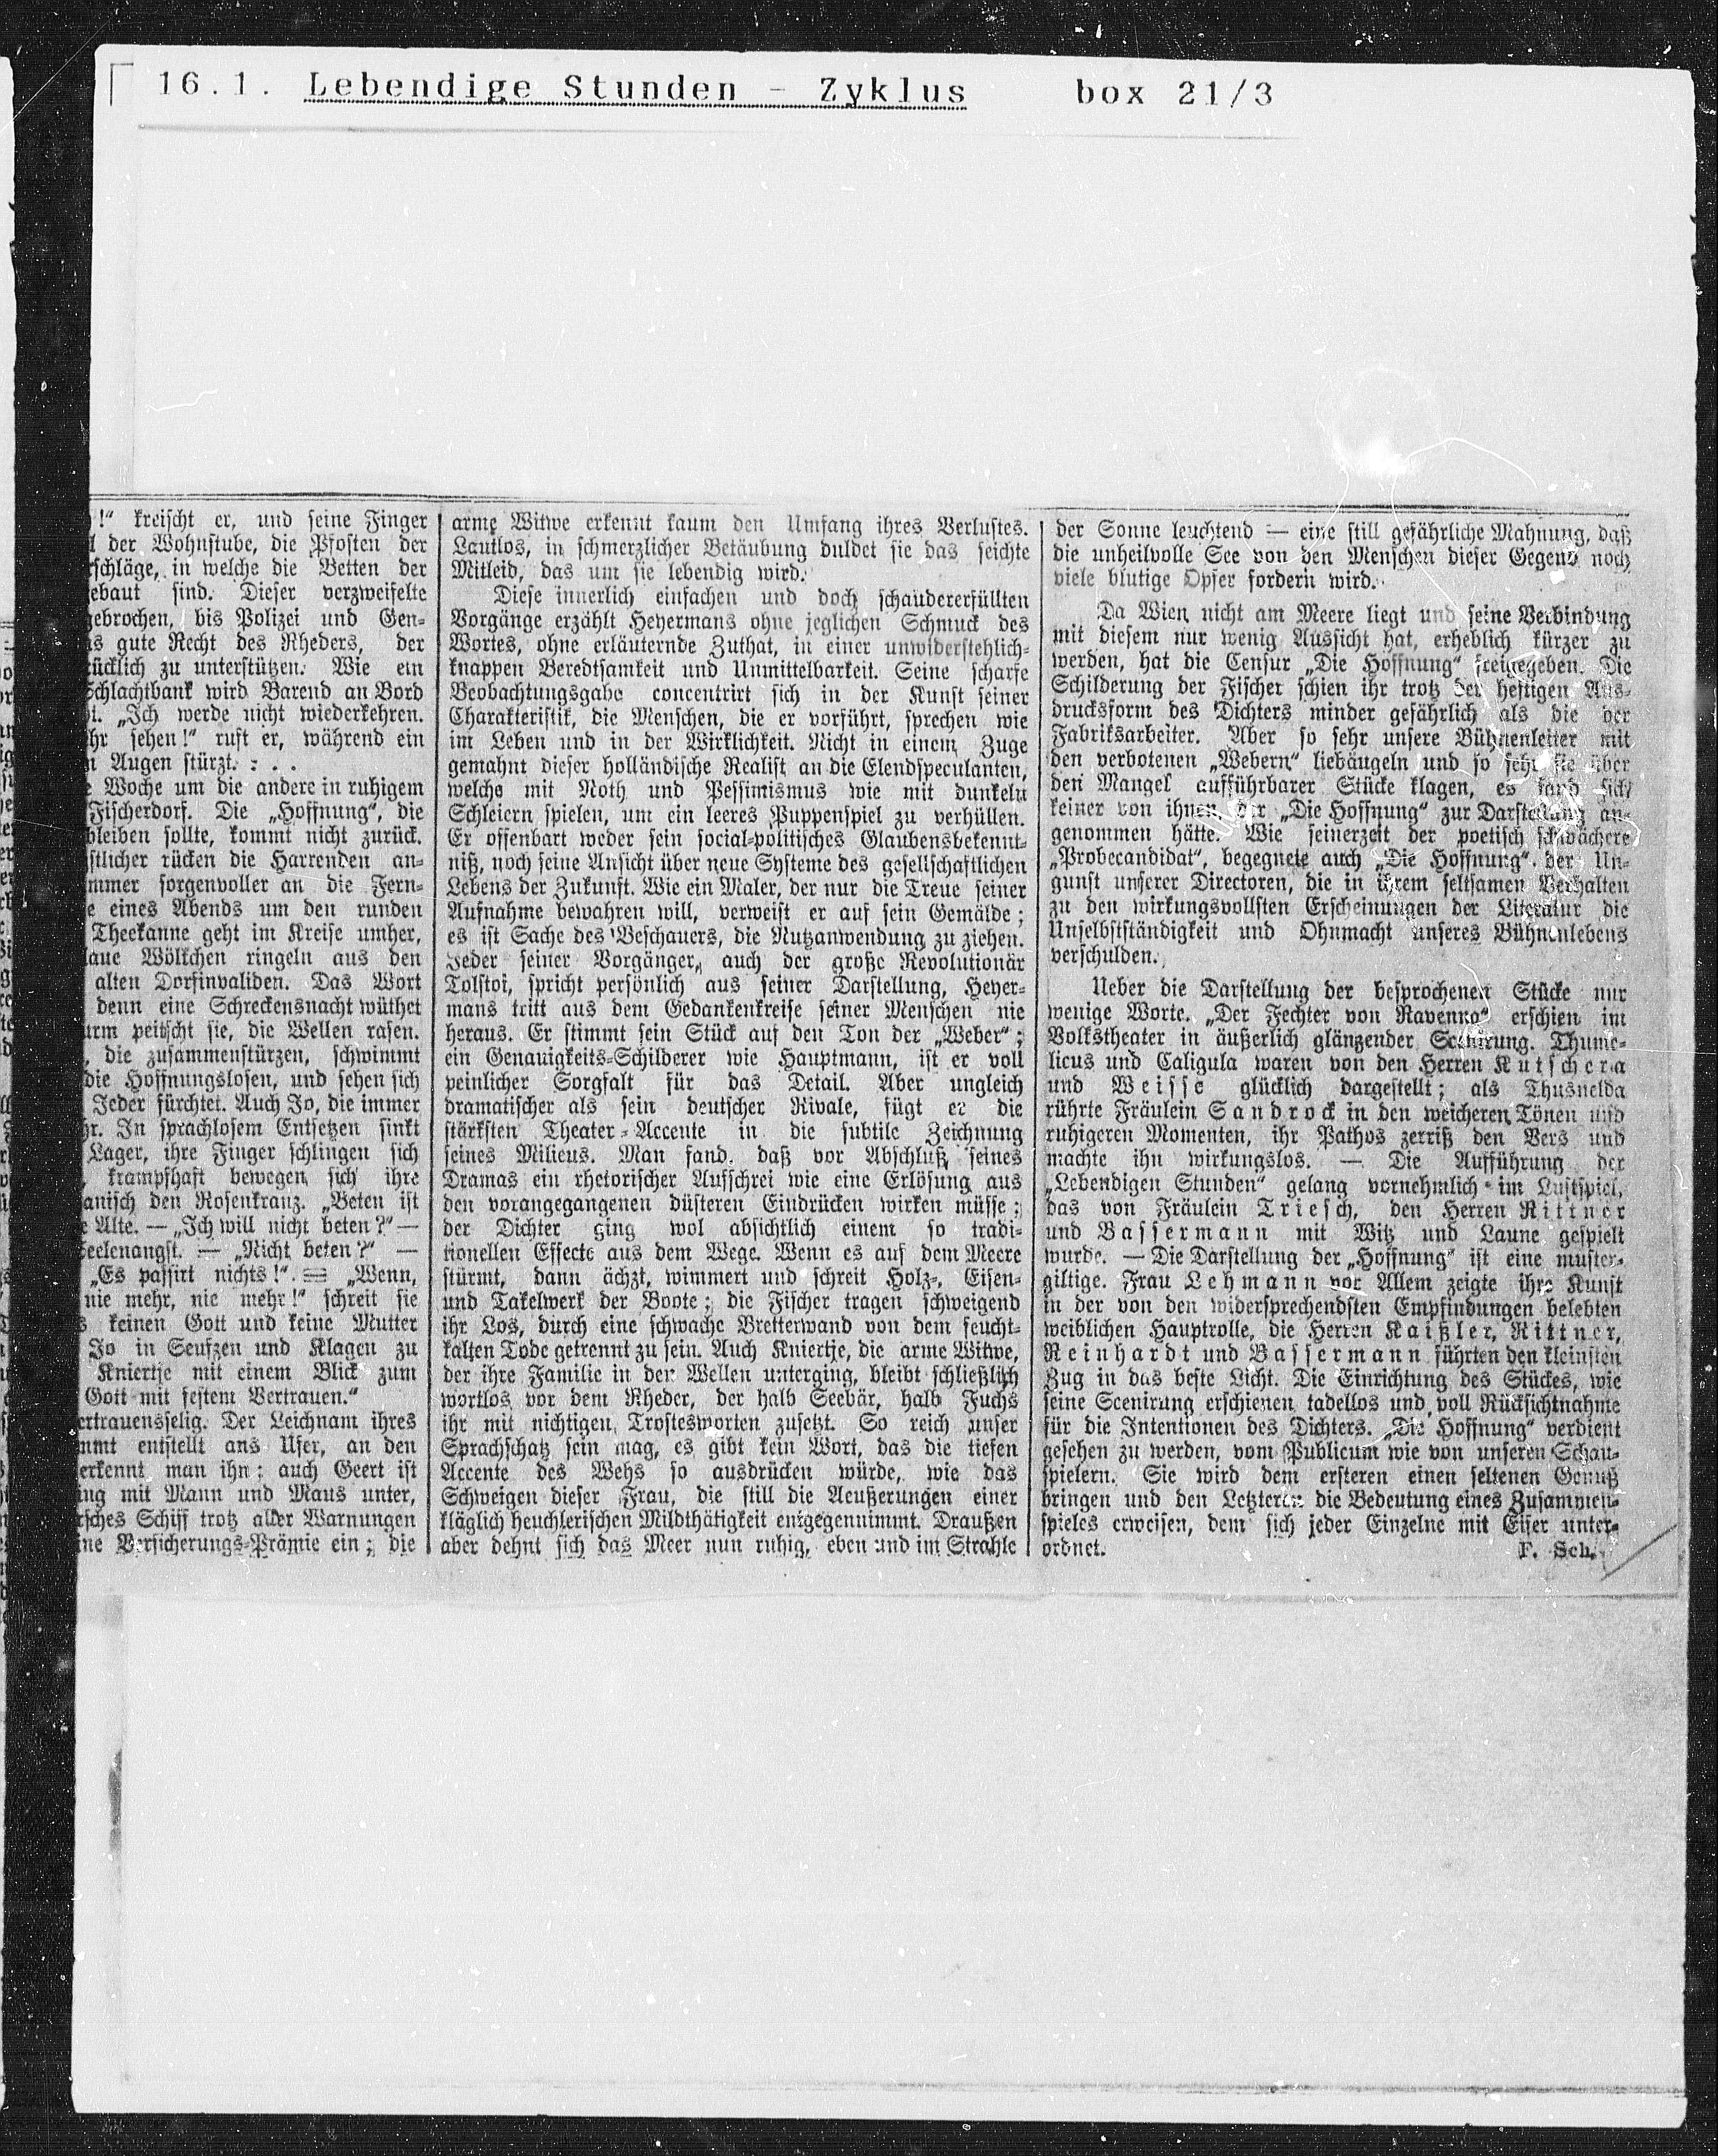 16.1. Lebendige Stunden – Zyklus box 21/3
!“ kreischt er, und seine Finger
der Wohnstube, die Pfosten der
schläge, in welche die Betten der
ebaut sind. Dieser verzweifelte
gebrochen, bis Polizei und Gen-
s gute Recht des Rheders, der
rücklich zu unterstützen. Wie ein
Schlachtbank wird Barend an Bord
t. „Ich werde nicht wiederkehren.
hr sehen!“ ruft er, während ein
n Augen stürzt. . . .
e Woche um die andere in ruhigem
Fischerdorf. Die „Hoffnung“, die
bleiben sollte, kommt nicht zurück.
stlicher rücken die Harrenden an-
mmer sorgenvoller an die Fern-
e eines Abends um den runden
Theekanne geht im Kreise umher,
laue Wölkchen ringeln aus den
alten Dorfinvaliden. Das Wort
denn eine Schreckensnacht wüthet
urm peitscht sie, die Wellen rasen.
, die zusammenstürzen, schwimmt
die Hoffnungslosen, und sehen sich
Jeder fürchtet. Auch Jo, die immer
hr. In sprachlosem Entsetzen sinkt
Lager, ihre Finger schlingen sich
, krampfhaft bewegen sich ihre
anisch den Rosenkranz. „Beten ist
e Alte. — „Ich will nicht beten?“ —
Seelenangst. — „Nicht beten?“ —
„Es passirt nichts!“. — „Wenn,
nie mehr, nie mehr!“ schreit sie
s keinen Gott und keine Mutter
Jo in Seufzen und Klagen zu
Kniertje mit einem Blick zum
Gott mit festem Vertrauen.“
ertrauensselig. Der Leichnam ihres
mmt entstellt ans Ufer, an den
erkennt man ihn; auch Geert ist
ing mit Mann und Maus unter,
rsches Schiff trotz aller Warnungen
ine Versicherungs-Prämie ein; die
arme Witwe erkennt kaum den Umfang ihres Verlustes.
Lautlos, in schmerzlicher Betäubung duldet sie das seichte
Mitleid, das um sie lebendig wird.
Diese innerlich einfachen und doch schaudererfüllten
Vorgänge erzählt Heyermans ohne jeglichen Schmuck des
Wortes, ohne erläuternde Zuthat, in einer unwiderstehlich-
knappen Beredtsamkeit und Unmittelbarkeit. Seine scharfe
Beobachtungsgabe concentrirt sich in der Kunst seiner
Charakteristik, die Menschen, die er vorführt, sprechen wie
im Leben und in der Wirklichkeit. Nicht in einem Zuge
gemahnt dieser holländische Realist an die Elendspeculanten,
welche mit Noth und Pessimismus wie mit dunkeln
Schleiern spielen, um ein leeres Puppenspiel zu verhüllen.
Er offenbart weder sein social-politisches Glaubensbekennt-
niß, noch seine Ansicht über neue Systeme des gesellschaftlichen
Lebens der Zukunft. Wie ein Maler, der nur die Treue seiner
Aufnahme bewahren will, verweist er auf sein Gemälde;
es ist Sache des Beschauers, die Nutzanwendung zu ziehen.
Jeder seiner Vorgänger, auch der große Revolutionär
Tolstoi, spricht persönlich aus seiner Darstellung, Heyer-
mans tritt aus dem Gedankenkreise seiner Menschen nie
heraus. Er stimmt sein Stück auf den Ton der „Weber“;
ein Genauigkeits-Schilderer wie Hauptmann, ist er voll
peinlicher Sorgfalt für das Detail. Aber ungleich
dramatischer als sein deutscher Rivale, fügt er die
stärksten Theater-Accente in die subtile Zeichnung
seines Milieus. Man fand, daß vor Abschluß seines
Dramas ein rhetorischer Aufschrei wie eine Erlösung aus
den vorangegangenen düsteren Eindrücken wirken müsse;
der Dichter ging wol absichtlich einem so tradi-
tionellen Effecte aus dem Wege. Wenn es auf dem Meere
stürmt, dann ächzt, wimmert und schreit Holz-, Eisen-
und Takelwerk der Boote; die Fischer tragen schweigend
ihr Los, durch eine schwache Bretterwand von dem feucht-
kalten Tode getrennt zu sein. Auch Kniertje, die arme Witwe,
der ihre Familie in den Wellen unterging, bleibt schließlich
wortlos vor dem Rheder, der halb Seebär, halb Fuchs
ihr mit nichtigen Trostesworten zusetzt. So reich unser
Sprachschatz sein mag, es gibt kein Wort, das die tiefen
Accente des Wehs so ausdrücken würde, wie das
Schweigen dieser Frau, die still die Aeußerungen einer
kläglich heuchlerischen Mildthätigkeit entgegennimmt. Draußen
aber dehnt sich das Meer nun ruhig, eben und im Strahle
der Sonne leuchtend — eine still gefährliche Mahnung, daß
die unheilvolle See von den Menschen dieser Gegend noch
viele blutige Opfer fordern wird.
Da Wien nicht am Meere liegt und seine Verbindung
mit diesem nur wenig Aussicht hat, erheblich kürzer zu
werden, hat die Censur „Die Hoffnung“ freigegeben. Die
Schilderung der Fischer schien ihr trotz der heftigen Aus-
drucksform des Dichters minder gefährlich als die der
Fabriksarbeiter. Aber so sehr unsere Bühnenleiter mit
den verbotenen „Webern“ liebäugeln und so sehr sie über
den Mangel aufführbarer Stücke klagen, es fand sich
keiner von ihnen, der „Die Hoffnung“ zur Darstellung an-
genommen hätte. Wie seinerzeit der poetisch schwächere
„Probecandidat“, begegnete auch „Die Hoffnung“ der Un-
gunst unserer Directoren, die in ihrem seltsamen Verhalten
zu den wirkungsvollsten Erscheinungen der Literatur die
Unselbstständigkeit und Ohnmacht unseres Bühnenlebens
verschulden.
Ueber die Darstellung der besprochenen Stücke nur
wenige Worte. „Der Fechter von Ravenna“ erschien im
Volkstheater in äußerlich glänzender Scenirung. Thume-
licus und Caligula waren von den Herren Kutschera
und Weisse glücklich dargestellt; als Thusnelda
rührte Fräulein Sandrock in den weicheren Tönen und
ruhigeren Momenten, ihr Pathos zerriß den Vers und
machte ihn wirkungslos. — Die Aufführung der
„Lebendigen Stunden“ gelang vornehmlich im Lustspiel,
das von Fräulein Triesch, den Herren Rittner
und Bassermann mit Witz und Laune gespielt
wurde. — Die Darstellung der „Hoffnung“ ist eine muster-
giltige. Frau Lehmann vor Allem zeigte ihre Kunst
in der von den widersprechendsten Empfindungen belebten
weiblichen Hauptrolle, die Herren Kaißler, Rittner,
Reinhardt und Bassermann führten den kleinsten
Zug in das beste Licht. Die Einrichtung des Stückes, wie
seine Scenirung erschienen tadellos und voll Rücksichtnahme
für die Intentionen des Dichters. „Die Hoffnung“ verdient
gesehen zu werden, vom Publicum wie von unseren Schau-
spielern. Sie wird dem ersteren einen seltenen Genuß
bringen und den Letzteren die Bedeutung eines Zusammen-
spieles erweisen, dem sich jeder Einzelne mit Eifer unter-
ordnet. F. Sch.